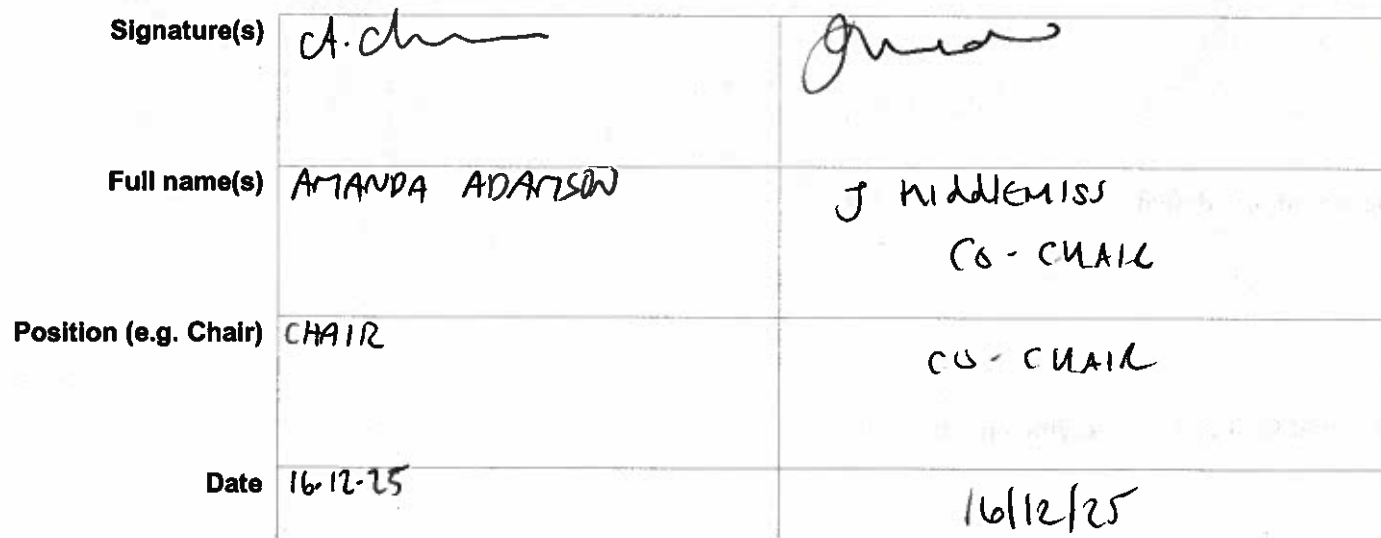 Signature(s)
Full name(s) AMANDA ADAMSON J MIDDLEMISS
CO-CHAIR
Position (e.g. Chair) CHAIR CO-CHAIR
Date 16.12.25 16/12/25